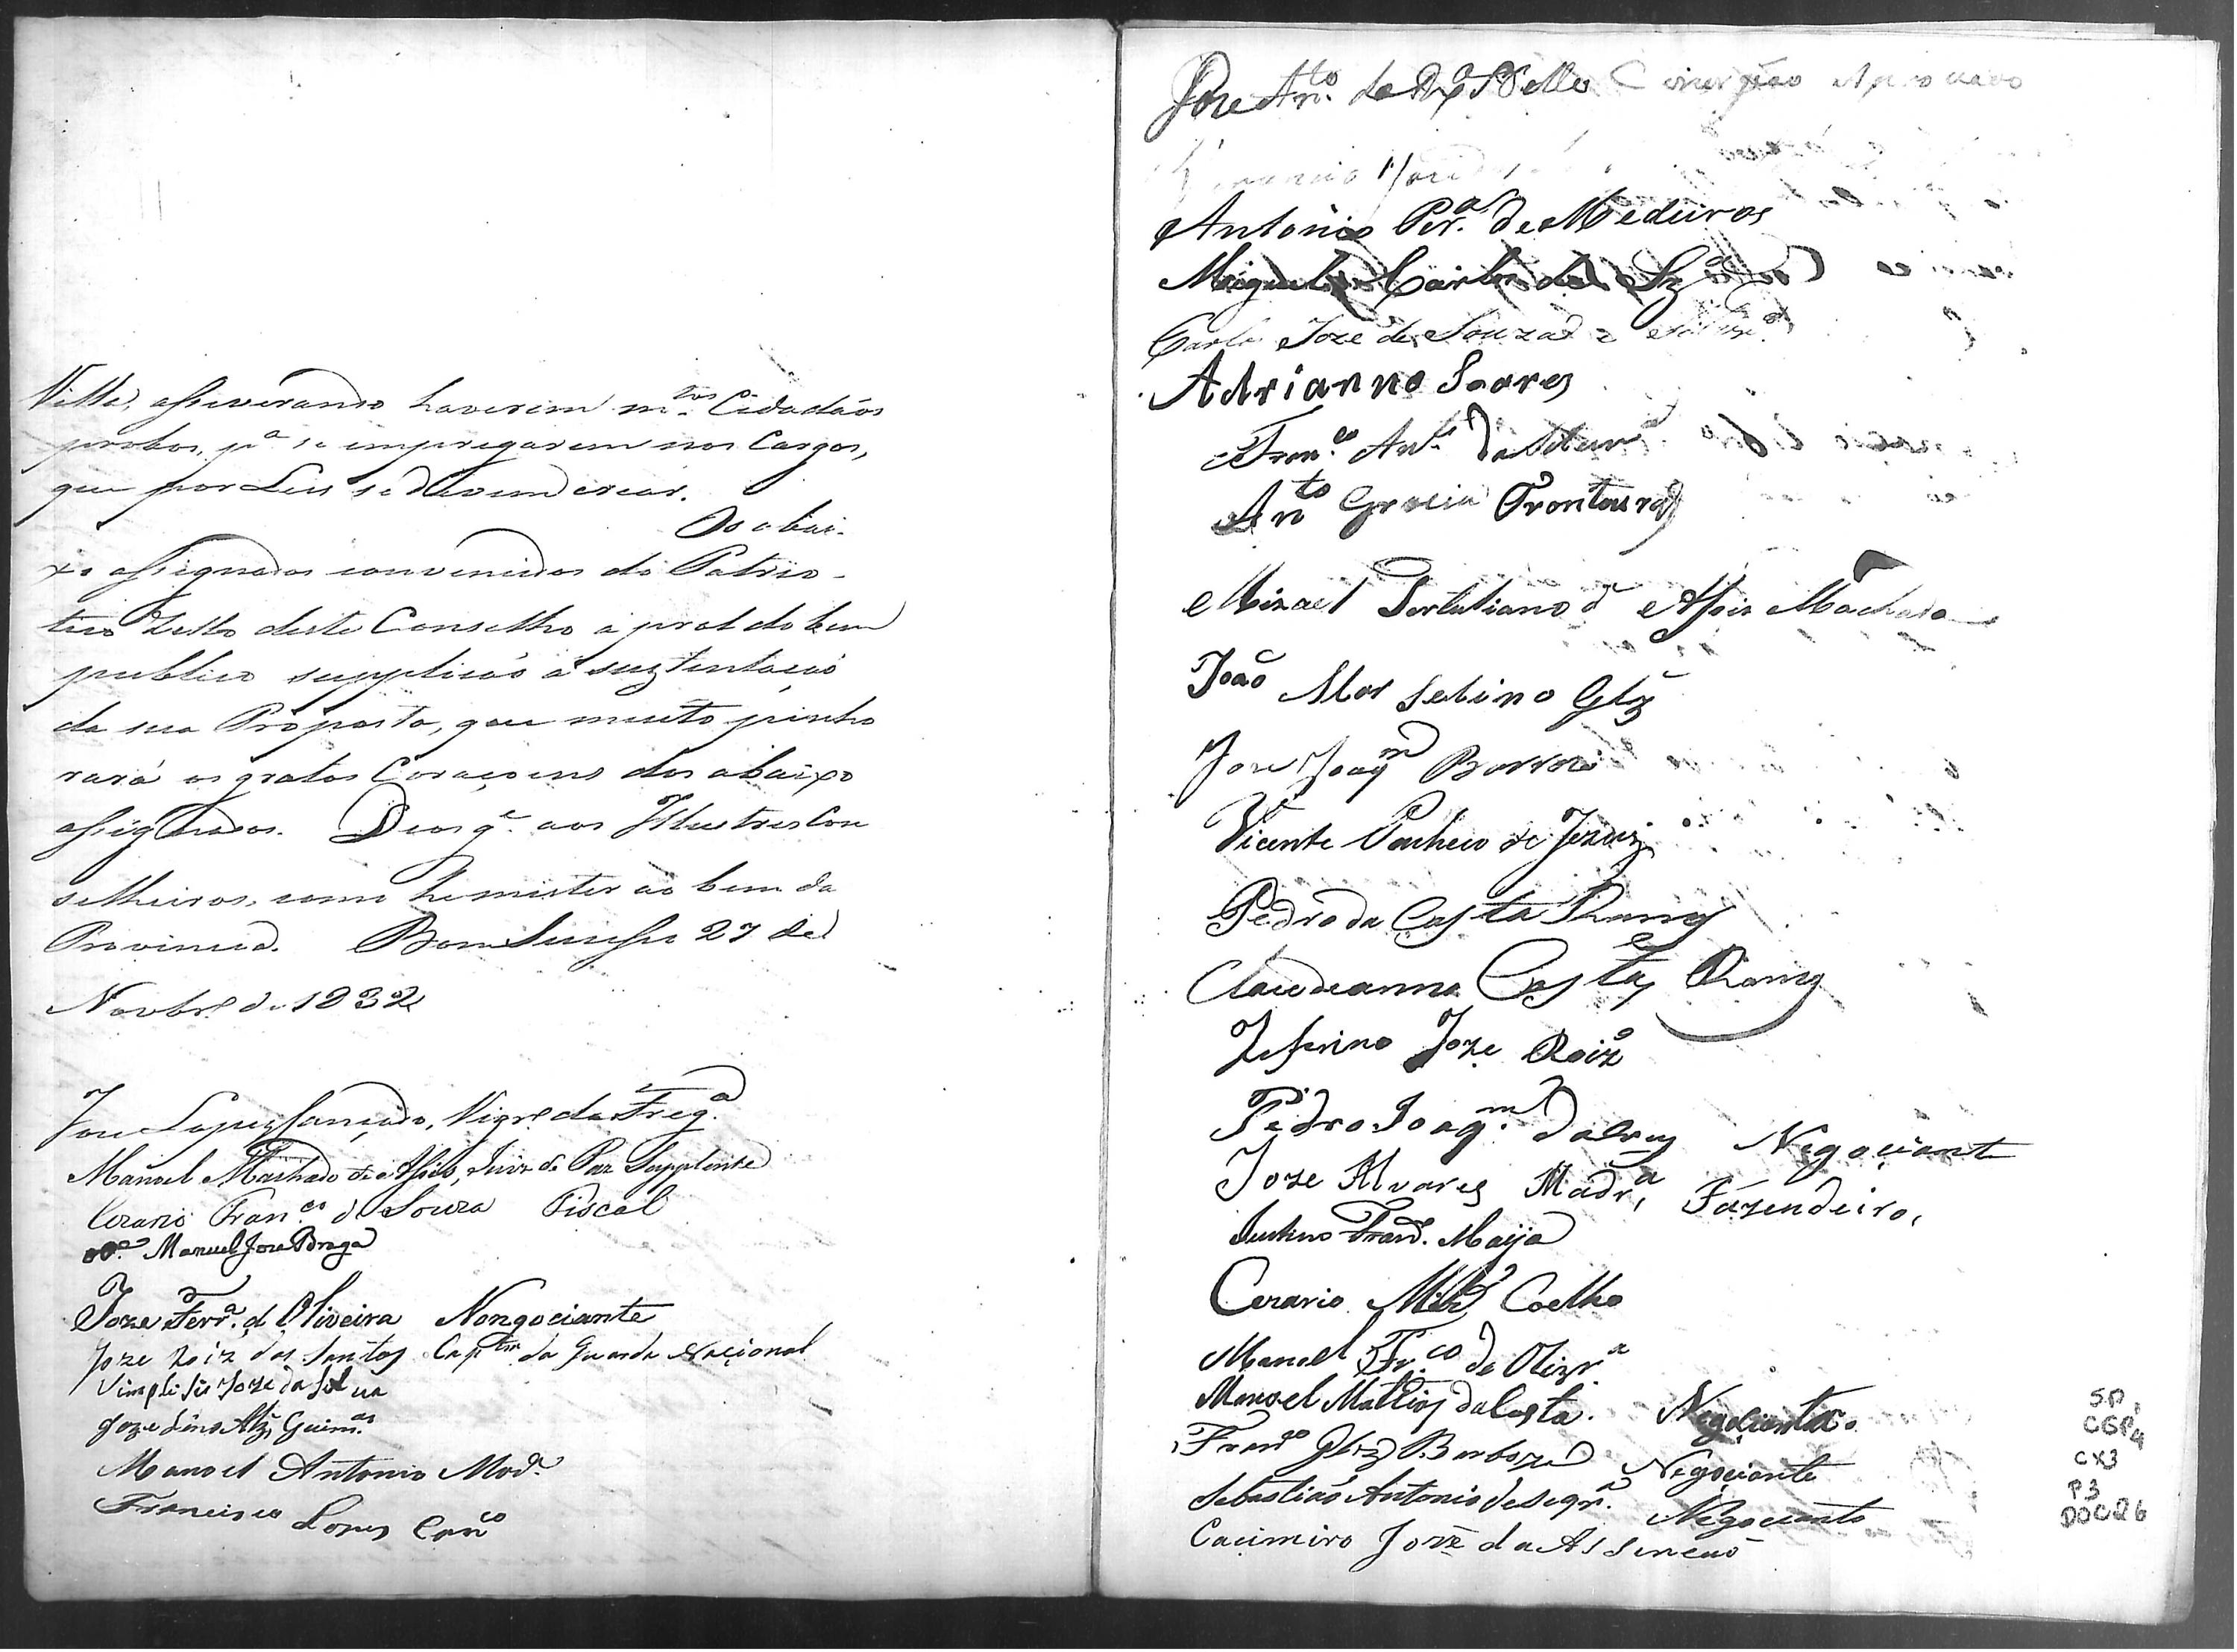 Villa, asseverando haverem m.tos Cidadãos
probos, p.a se empregarem nos Cargos,
que por Leis se devem crear.
Os abai-
xo assignados convencidos do Patrio-
tico Zello deste Conselho a prol do bem
publico supplicão a sustentação
da sua Proposta, que muito pinho
rará os gratos Coraçoens dos abaixo
assignados. Deos g.e aos Illustres Con
selheiros, como he mister ao bem da
Provincia. Bom Successo 27 de
Novbr.o de 1832
Joze Lopes Cançado, Vigr.o da Freg.a
Manoel Machado de Assis, Juiz de Paz Supplente
Cezario Fran.co de Souza Fiscal
Manuel Joze Braga
Joze Ferr.a d Oliveira Nongociante
Joze Roiz dos Santos Cap.tm da Guarda Nacional
Simplisio Joze da Silva
Joze Lino Alz Guim.es
Manoel Antonio Mod.
Francisco Lopes Can.co
Joze An.to de Mello Cirurgião Aprovado
Antonio Per.a de Medeiros
Miguel Carlos de Sz.a
Carlo Joze de Souza
Adrianno Soares
Fran.co An.to da
An.to Gracia Frontoura
Mizael Tertuliano d Assis Machado
João Severino Glz
Joze Joaq.m Barroso
Vicente Pacheco de Jezuz
Pedro da Costa Ramos
Claudeanno Costa Ramos
Zeferino Joze Roiz
Pedro Joaq.m dalves Negociante
Joze Alvares Madr.a Fazendeiro,
Justino Fran.co Maija
Cezario Miz Coelho
Manoel Fr.co de Olivr.a
Manoel Mattios da Costa. Negocianta.
Fran.co Glz Barboza Negociante
Sebastião Antonio de Seqr.a Negocianto
Cacimiro Joze da Assencão
SP,
CGP4
CX3
P3
DOC26